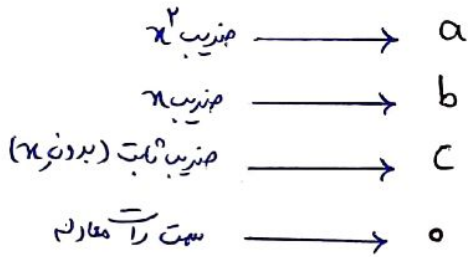 ضریب x² → a
ضریب x → b
ضریب ثابت (بدون x) → c
سمت راست معادله → 0